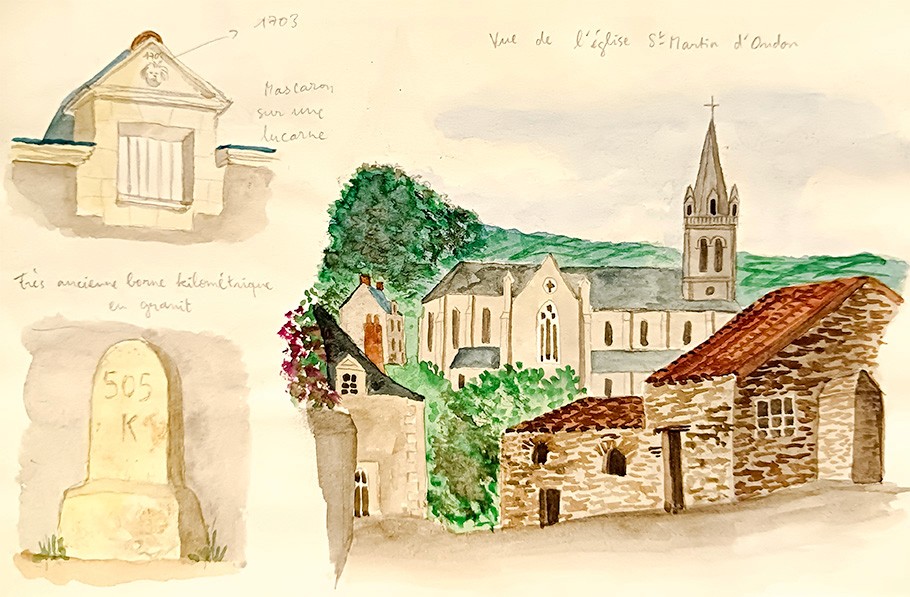 1703
Mascaron
sur une
lucarne
1703
Vue de l'église St Martin d'Oudon
Très ancienne borne kilométrique
en granit
505
K